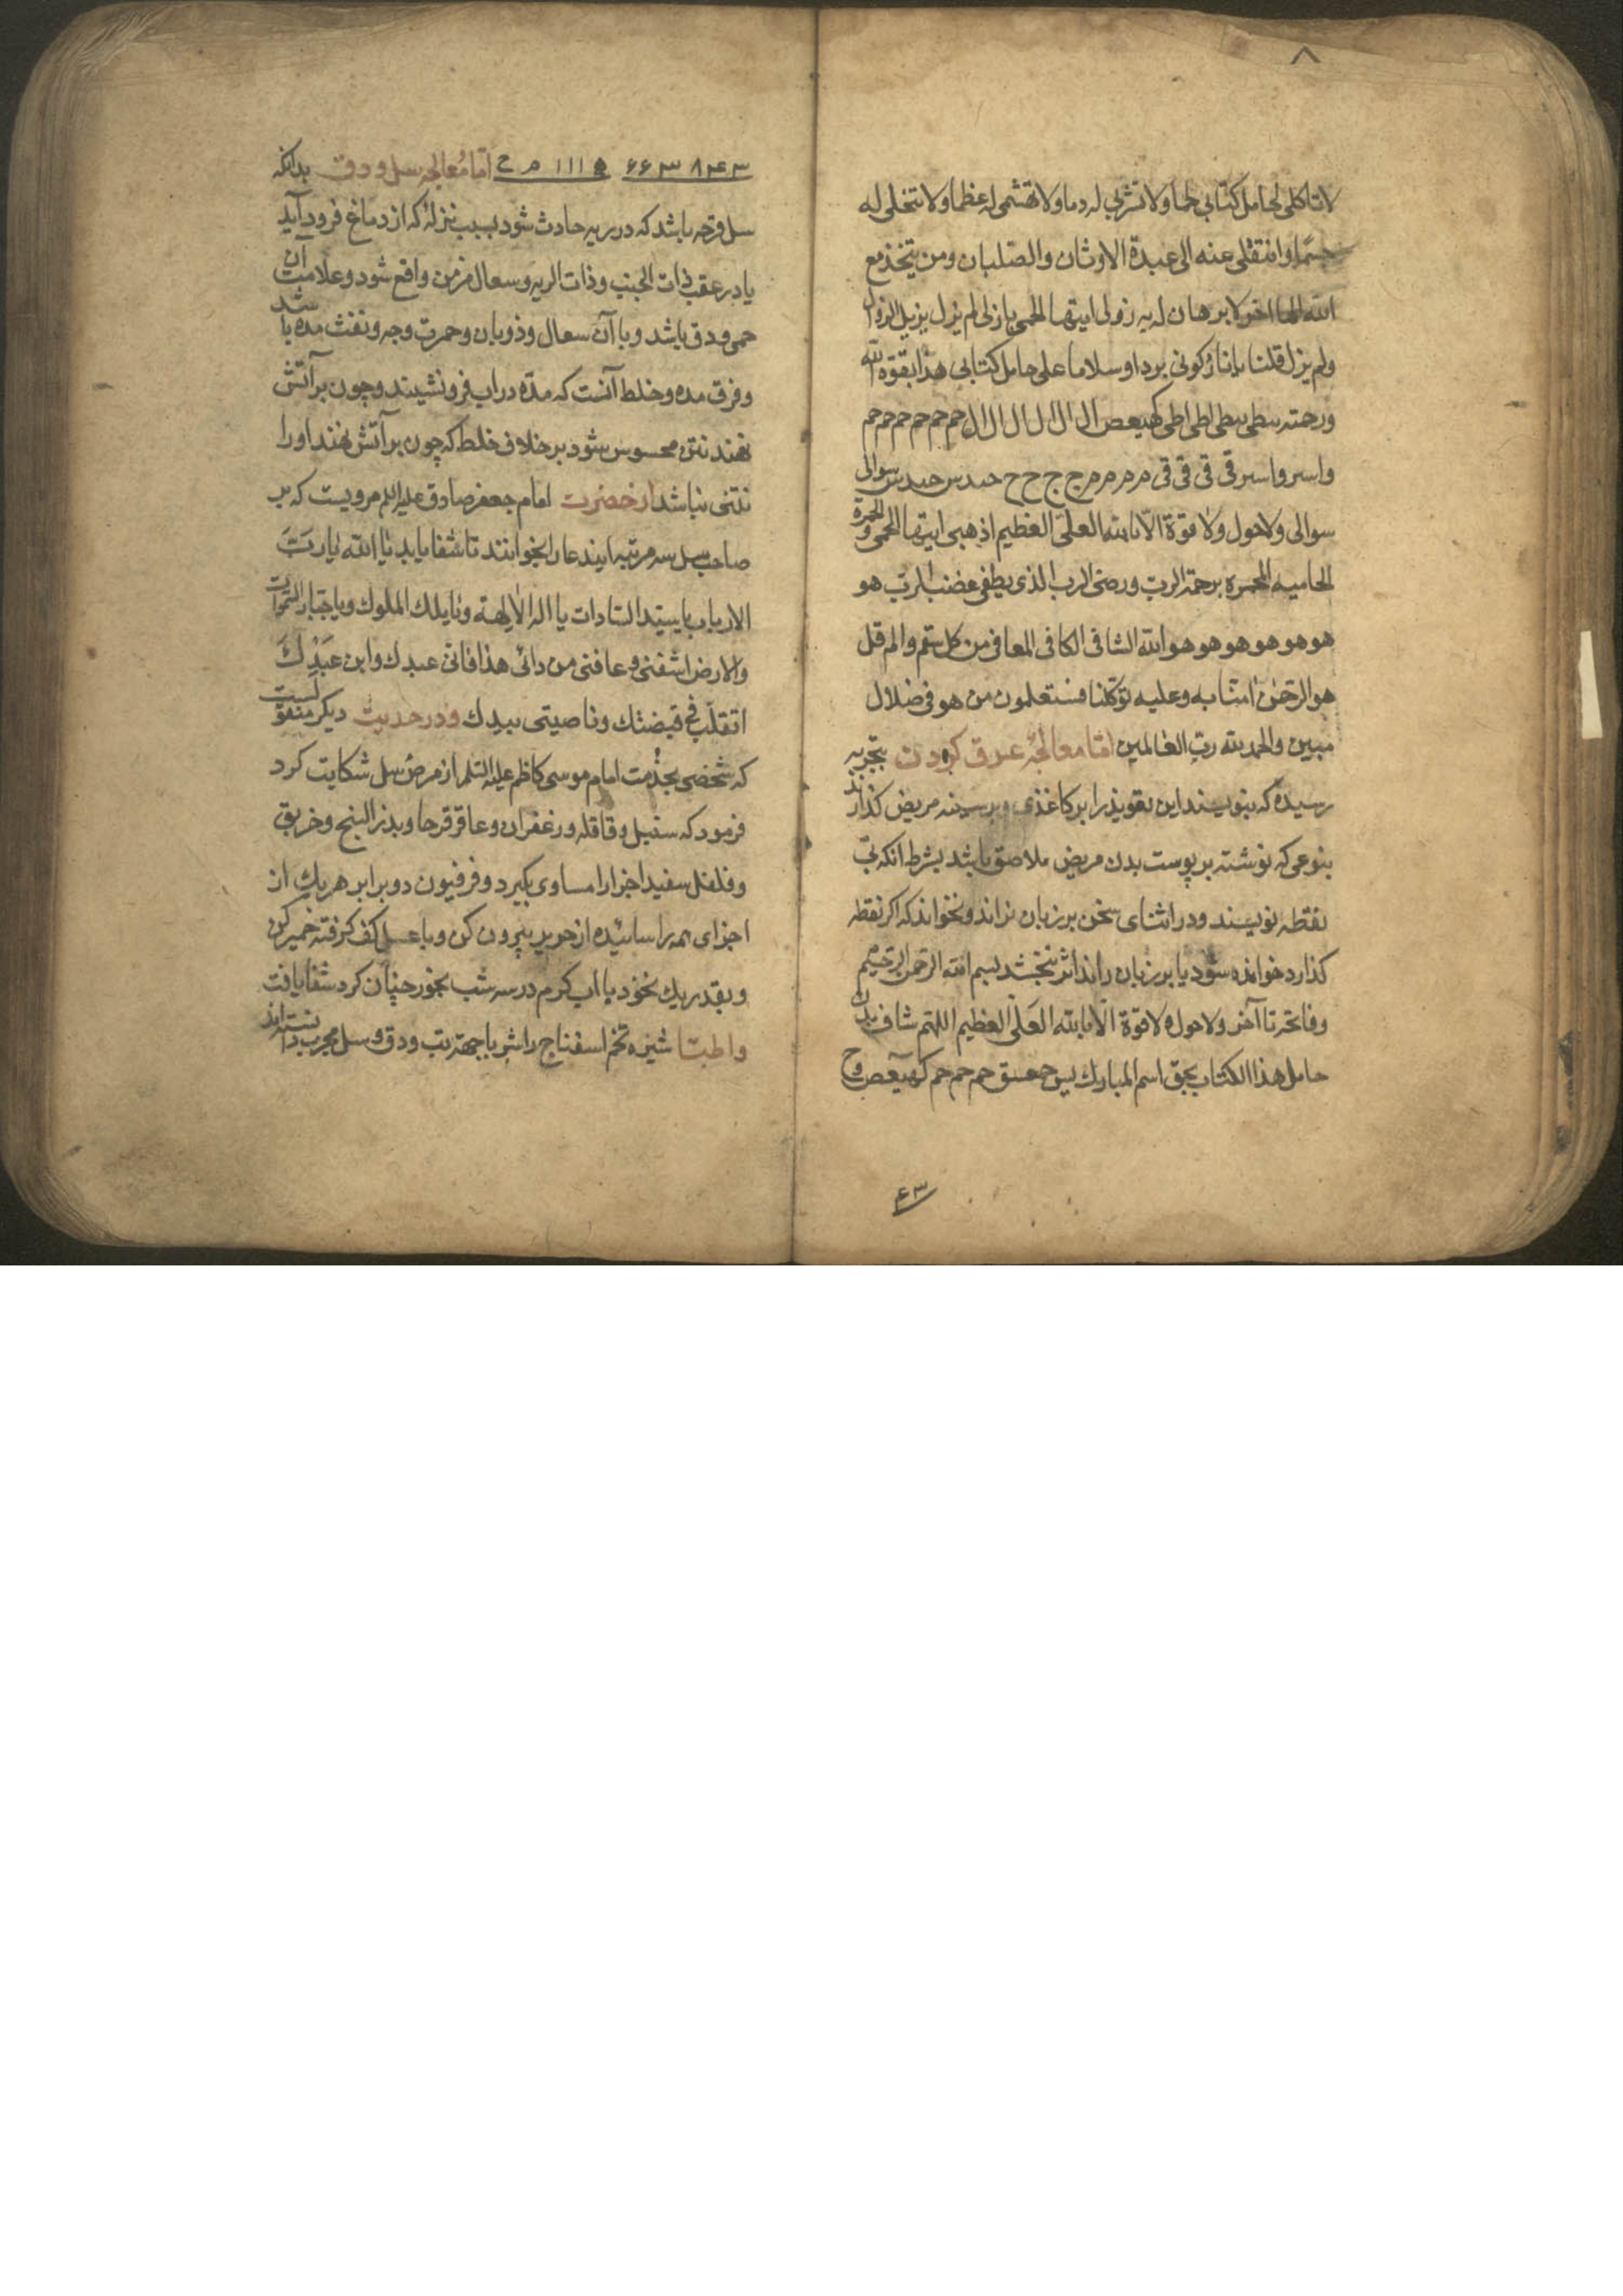 ۸
لا تاکلی لحامل کتابی لحما ولا تشربی له دما ولا تهشمی له عظما ولا تنحلی له
جسما وانتقلی عنه الی عبدة الاوثان والصلبان ومن یتخذ مع
الله الها اخر لا برهان له به زولی ایتها الحمی یا زلی لم یزل یزیل الزوال
ولم یزل قلنا یا نار کونی بردا وسلاما علی حامل کتابی هذا بقوة الله
ورحمته کهیعص ال ال ال ال ال ال حم حم حم حم حم حم حم
واسر واسر قی قی قی قی م م م م م ج ج ح ح سوالی
سوالی ولا حول ولا قوة الا بالله العلی العظیم اذهبی ایتها الحمی والحمرة
الحامیه المحمره برحمة الرب ورضی الرب الذی یطفی غضب الرب هو
هو هو هو هو هو هو هو الله الشافی الکافی المعافی من کل سقم والم قل
هو الرحمن امنا به وعلیه توکلنا فستعلمون من هو فی ضلال
مبین والحمد لله رب العالمین اما معالجهٔ عرق کردن بتجربه
رسیده که بنویسند این تعویذ را بر کاغذی وبر سینه مریض کذارند
بنوعی که نوشته بر پوست بدن مریض ملاصق باشد بشرط انکه بی
نقطه نویسند ودر اثنای سخن بر زبان نراند ونخواند که اکر نقطه
کذارد خوانده شود یا بر زبان راند اثر نبخشد بسم الله الرحمن الرحیم
وفاتحه تا آخر ولا حول ولا قوة الا بالله العلی العظیم اللهم شاف بدن
حامل هذا الکتاب بحق اسم المبارک یس حمعسق حم حم حم کهیعص وح
۴۳
۸۴۳ ۶۶۳ ۱۱۱ م ح اما معالجه سل ودق بدانکه
سل قرحه باشد که در ریه حادث شود بسبب نزلهٔ که از دماغ فرود آید
یا در عقب ذات الجنب وذات الریه وسعال مزمن واقع شود وعلامت آن
حمی ودق باشد وبا آن سعال وذوبان وحمرت وجه ونفث مده باشد
وفرق مده وخلط آنست که مده در اب فرو نشیند وچون بر آتش
نهند نتن محسوس شود بر خلاف خلط که چون بر آتش نهند او را
نتنی نباشد از حضرت امام جعفر صادق علیه السلام مرویست که بر
صاحب سل سه مرتبه ایندعا را بخوانند تا شفا یابد یا الله یا رب
الارباب یا سید السادات یا اله الالهة ویا ملک الملوک ویا جبار السموات
والارض اشفنی وعافنی من دائی هذا فانی عبدک وابن عبدک
اتقلب فی قبضتک وناصیتی بیدک ودر حدیث دیکر منقولست
که شخصی بخدمت امام موسی کاظم علیه السلام از مرض سل شکایت کرد
فرمود که سنبل وقاقله وزعفران وعاقرقرحا وبذر البنج وخربق
وفلفل سفید اجزا را مساوی بکیرد وفرفیون دو برابر هر یک از
اجزای همه را سائیده از حریر بیرون کن وبا عسل کف کرفته خمیر کن
وبقدر یک نخود با اب کرم در سه شب بخور چنان کرد شفا یافت
واطبا شیره تخم اسفناج را شربا جهة تب ودق وسل مجرب دانسته‌اند